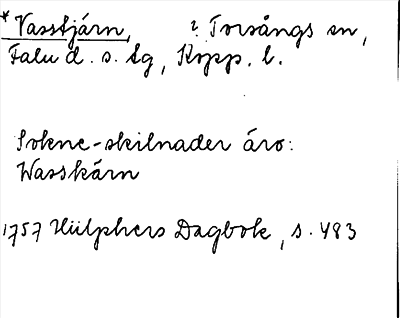 * Vasstjärn, ? Torsångs sn,
Falu d. s. tg, Kopp. l.
Sokne-skilnader äro:
Wasskärn
1757 Hülphers Dagbok, s. 483